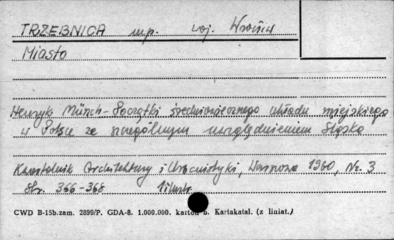 TRZEBNICA m.p. woj. Wrocław
Miasto
Henryk Münch - Początki średniowiecznego układu miejskiego
w Polsce ze szczególnym uwzględnieniem Śląska
Kwartalnik Architektury i Urbanistyki, Warszawa 1960, Nr. 3
Str. 366-368 1 ilustr.
CWD B-15b.zam. 2899/P. GDA-8. 1.000.000. karton b. Kartakatal. (z liniat.)